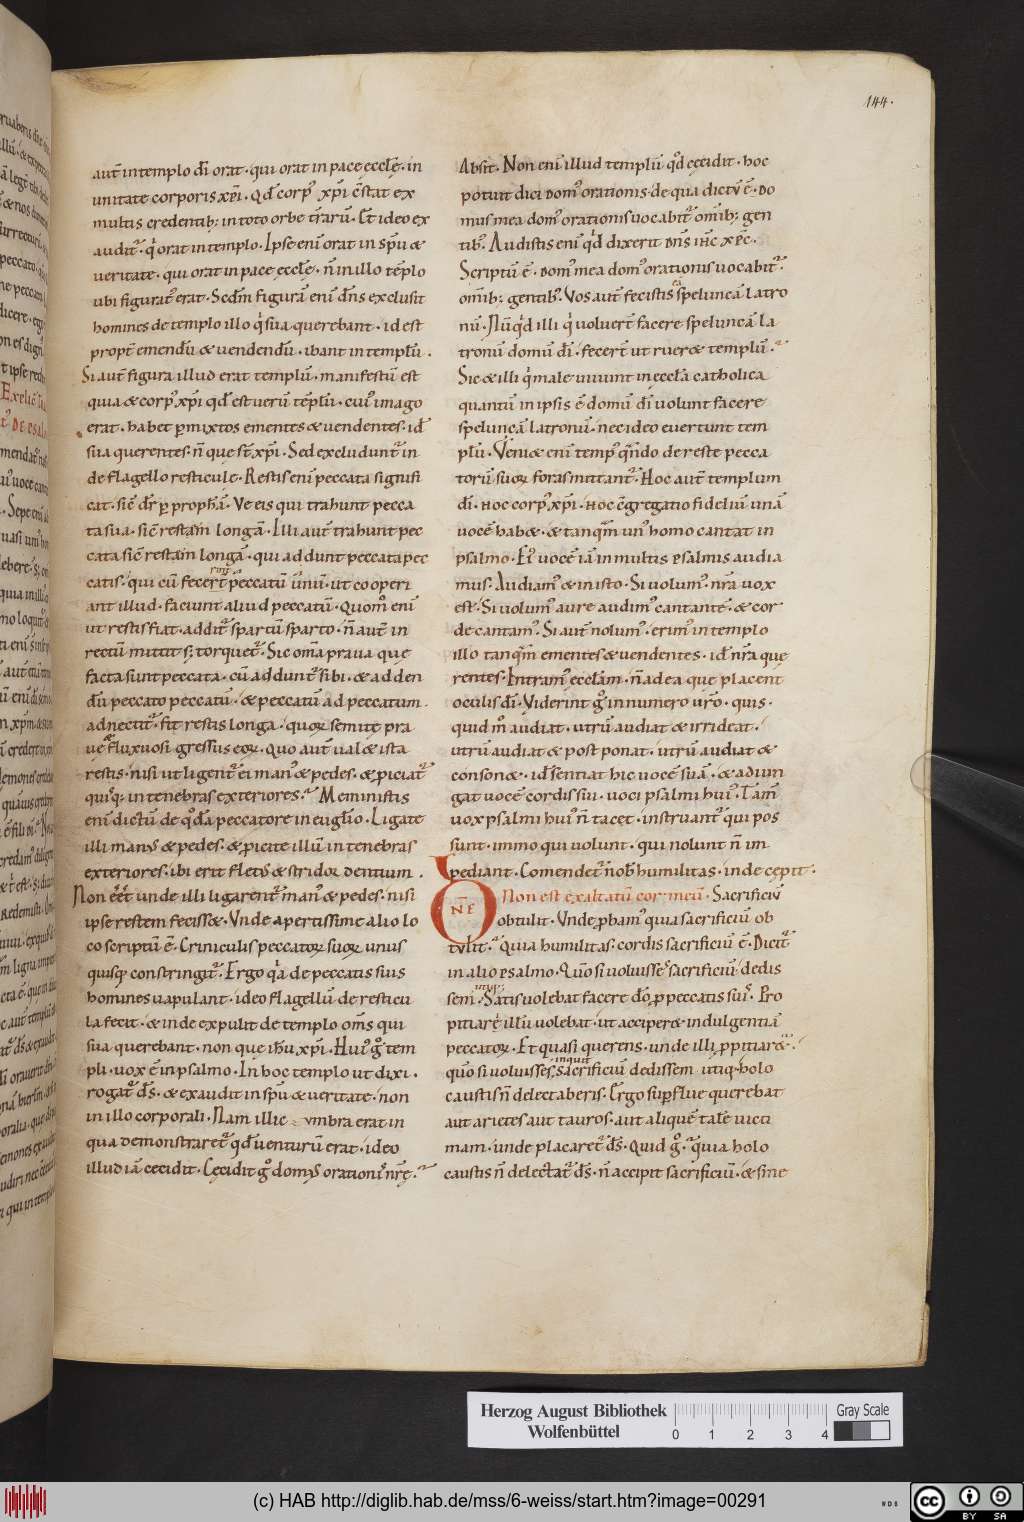 144.
aut̄ in templo dī orat · qui orat in pace ęcclę̄ · in
unitate corporis xp̄i · Qd̄ corp᾽ xp̄i c̄stat ex
multis credentib; in toto orbe tr̄arū · Et ideo ex
auditr̄ · q̇ orat in templo · Ipse enī orat in sp̄u &
veritate · qui orat in pace ęcclę̄ · n̄ in illo tēplo
ubi figurat᾽ erat · Scdm̄ figurā enī dn̄s exclusit
homines de templo illo q̇ sua querebant · id est
propt̄ emendū & vendendū · ibant in templū ·
Si aut̄ figura illud erat templū · manifestū est
quia & corp᾽ xp̄i qd̄ est verū tēplū · cui᾽ imago
erat · habet ꝑmixtos ementes & vendentes · id ē
sua querentes · n̄ que st̄ xp̄i · Sed excluduntr̄ in
de flagello resticule · Restis enī peccata signifi
cat · sic̄ dr̄ ꝑ prophā · Ve eis qui trahunt pecca
ta sua · sic̄ restam̄ longā · Illi aut̄ trahunt pec
cata sic̄ restam longā · qui addunt peccata pec
catis · qui cū fecer̄t peccatū unū · ut cooperi
ant illud · faciunt aliud peccatū · Quom̄ enī
ut restis fiat · additr̄ spartū sparto · n̄ aut̄ in
rectū mittit s; torquetr̄ · Sic om̄a praua quę
facta sunt peccata · cū adduntr̄ sibi · & adden
dū peccato peccatū · & peccatū ad peccatum ·
adnectitr̄ · fit restis longa · quoꝝ semitę pra
uę & fluxuosi gressus eoꝝ · Quo aut̄ ual& ista
restis · nisi ut ligentr̄ ei man᾽ & pedes · & ꝓiciatr̄
quisq; in tenebras exteriores · Meministis
enī dictū de qd̄a peccatore in euglīo · Ligate
illi manus & pedes · & ꝓicite illū in tenebras
exteriores · ibi erit flet᾽ & stridoꝛ dentium ·
Non eēt unde illi ligarentr̄ man᾽ & pedes · nisi
ipse restem feciss& · Vnde apertissime alio lo
co scriptū ē · Criniculis peccatoꝝ suoꝝ unus
quisq; constringitr̄ · Ergo qa de peccatis suis
homines vapulant · ideo flagellū de resticu
la fecit · & inde expulit de templo om̄s qui
sua querebant · non que ih̄u xp̄i · Hui᾽ g̊ tem
pli · uox ē in psalmo · In hoc templo ut dixi ·
rogatr̄ ds̄ · & exaudit in sp̄u & veritate · non
in illo corporali · Nam illic umbra erat in
qua demonstraretr̄ qd̄ venturū erat · ideo
illud iā cecidit · Cęcidit g̊ domus orationis nr̄ę ·
Absit · Non enī illud templū qd̄ cecidit · hoc
potuit dici dom᾽ orationis · de qua dictū ē · Do
mus mea dom᾽ orationis uocabitr̄ om̄ib; gen
tib᾽ · Audistis enī qd̄ dixerit dn̄s ihc̄ xp̄c ·
Scriptū ē · Dom᾽ mea dom᾽ orationis uocabitr̄ ·
om̄ib; gentib᾽ · Vos aut̄ fecistis ea speluncā latro
nū · Nūqd illi q̇ voluer̄t facere speluncā la
tronū domū dī · fecer̄t ut ruer& templū ·
Sic & illi q̇ male uiuunt in ęccl̄a catholica
quantū in ipsis ē domū dī volunt facere
speluncā latronū · nec ideo euertunt tem
plū · Veni& enī temp᾽ qn̄do de reste pecca
torū suoꝝ foras mittantr̄ · Hoc aut̄ templum
dī · hoc corp᾽ xp̄i · hoc c̄gregatio fideliū unā
vocē hab& · & tanqm̄ un᾽ homo cantat in
psalmo · Ei᾽ vocē iā in multis psalmis audia
mus · Audiam᾽ & in isto · Si volum᾽ nr̄a uox
est · Si volum᾽ aure audim᾽ cantantē · & cor
de cantam᾽ · Si aut̄ nolum᾽ · erim᾽ in templo
illo tanqm̄ ementes & vendentes · id ē nr̄a que
rentes · Intram᾽ ęcclam̄ · n̄ ad ea quę placent
oculis dī · Viderint g̊ in numero ur̄o · quis ·
quid m̊ audiat · utrū audiat & irrideat ·
utrū audiat & post ponat · utrū audiat &
conson& · id ē sentiat hic vocē suā · & adiun
gat vocē cordis sui · voci psalmi hui᾽ · Tam̄
vox psalmi hui᾽ n̄ tacet · instruantr̄ qui pos
sunt · immo qui volunt · qui nolunt n̄ im
pediant · Comendetr̄ nob̄ humilitas · inde cępit ·
DŃE Non est exaltatū cor meū · Sacrificiū
obtulit · Vnde ꝓbam᾽ quia sacrificiū ob
tulit · Quia humilitas cordis sacrificiū ē · Dicitr̄
in alio psalmo · Qm̄ si voluisses sacrificiū dedis
sem utiq; · Satis volebat facere dō ꝓ peccatis suis · Pro
pitiari illū uolebat · ut acciper& indulgentiā
peccatoꝝ · Et quasi querens · unde illi ꝓpitiar& ·
qm̄ si voluisses inquit sacrificiū dedissem utiq; · holo
caustis n̄ delectaberis · Ergo suꝑflue querebat
aut arietes aut tauros · aut aliquē talē victi
mam · unde placaretr̄ ds̄ · Quid g̊ · quia holo
caustis n̄ delectatr̄ ds̄ · n̄ accipit sacrificiū · & sine
Herzog August Bibliothek
Wolfenbüttel
0 1 2 3 4
Gray Scale
(c) HAB http://diglib.hab.de/mss/6-weiss/start.htm?image=00291
WDB
cc BY SA